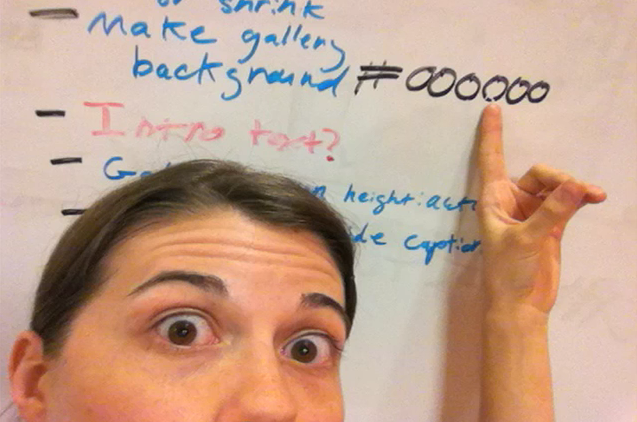 or shrink
- Make gallery
background #000000
- Intro text?
-
height: auto
- caption